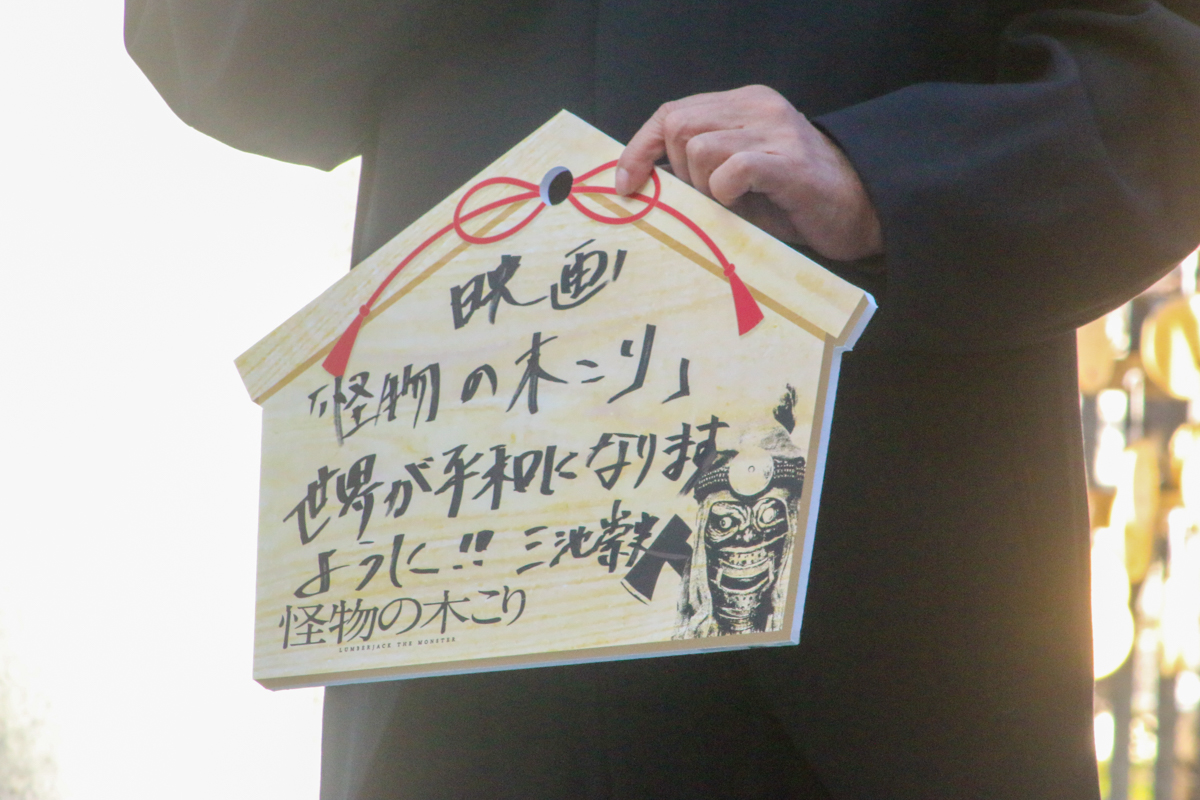 映画
「怪物の木こり」
世界が平和になります
ように!! 三池崇史
怪物の木こり
LUMBERJACK THE MONSTER